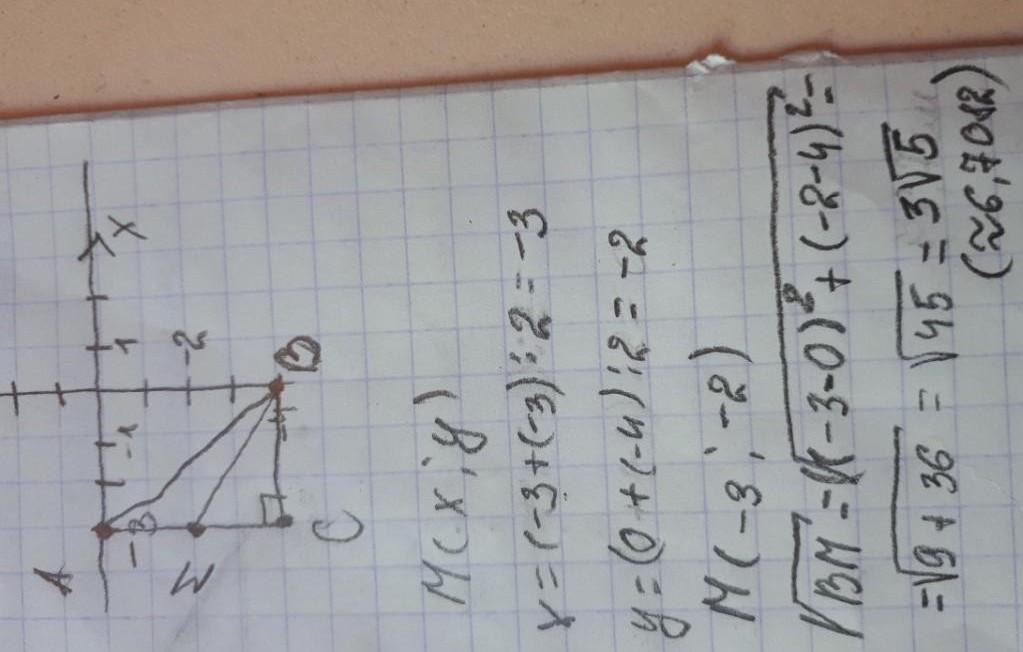 A
X
-3
-1
1
M
-2
C
-4
B
M(x;y)
x=(-3+(-3)):2=-3
y=(0+(-4):2=-2
M(-3;-2)
√BM=√(-3-0)²+(-2-4)²=
=√9+36 = √45 = 3√5
(≈6,7082)